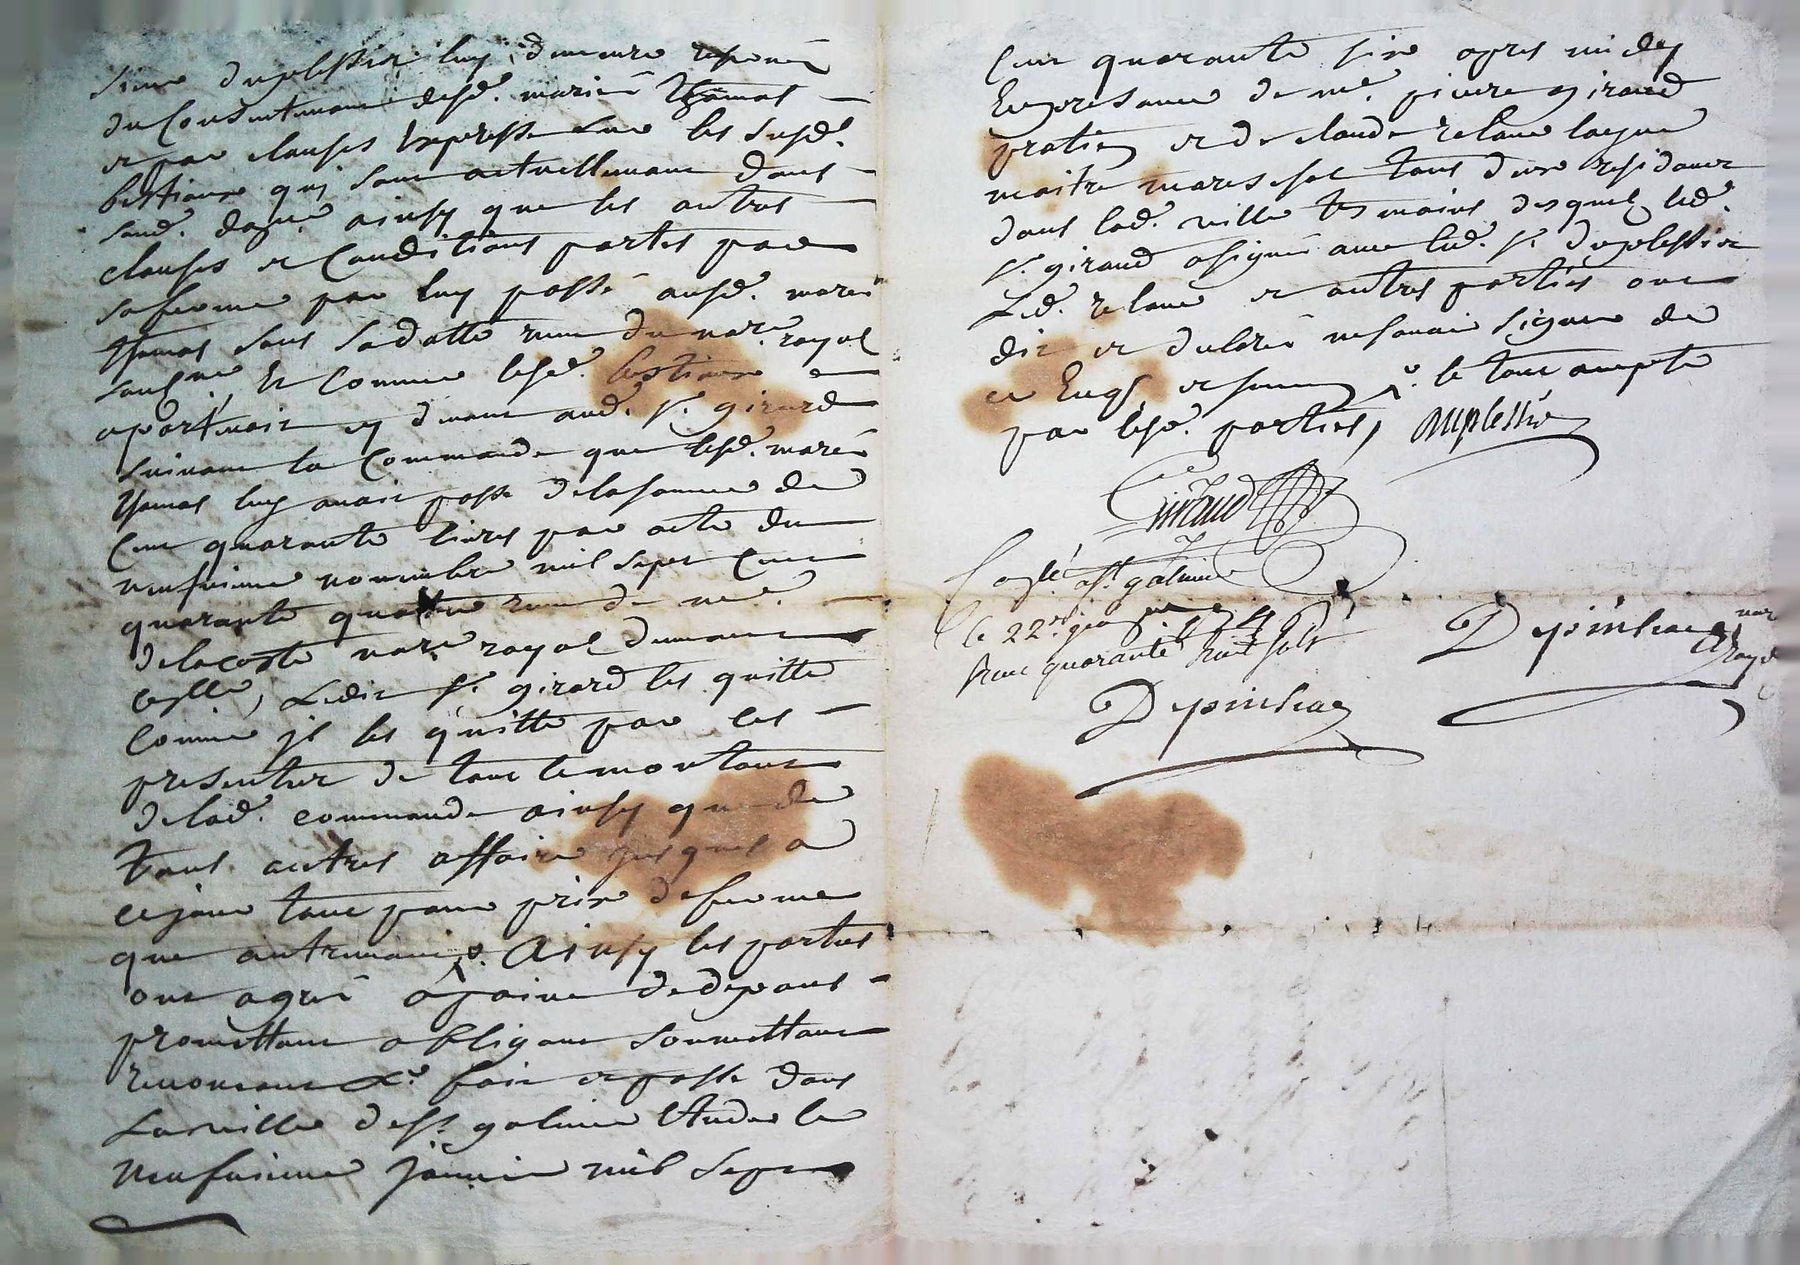 sieur duplessix luy demeure reservé
du Consentement desd. marié thomas
et par clauses Expresse sur les susd.
bestiaux qui sont actuellement dans
sond. domne. ainsy que les autres
clauses et Conditions portés par
saferme par luy passé ausd. marié
thomas sous sa datte reçue du nore. royal
Et Comme lesd. bestiaux
apartenoit cy devant aud. sr. girard
suivant la Commande que lesd. marié
thomas luy avoit passe delasomme de
Cent quarante livres par acte du
neufvieme novembre mil sept Cent
quarante quatre reçu de me.
delacoste nore royal demeurant
Ledit sr. girard les quitte
Comme jl les quitte par les
presentes de tout le montant
delad. commande ainsy que de
tout autres affaire jusques a
ce jour tant pour prix deferme
que autrement Ainsy les parties
ont agreé a peine dedepans
promettant obligeant soumettant
renonceant &c. fait et passe dans
Laville de st. galmier Etude le
neufvieme janvier mil sept
Cent quarante six apres midy
En presance de me. pierre giraud
pratien et de claude relave laque
maitre mareschal tous deux residants
dans lad. ville temoins desquels led.
sr. giraud a signé avec led. sr. duplessix
Led. relave et autres parties ont
dit et declaré ne savoir signer de
ce Enqs. et somms. le tout accepté
par lesd. parties, Duplessix
Giraud
Conllé. a st. galmier
le 22
Reçu quarante huit sols
Depinhac nore
royal
Depinhac